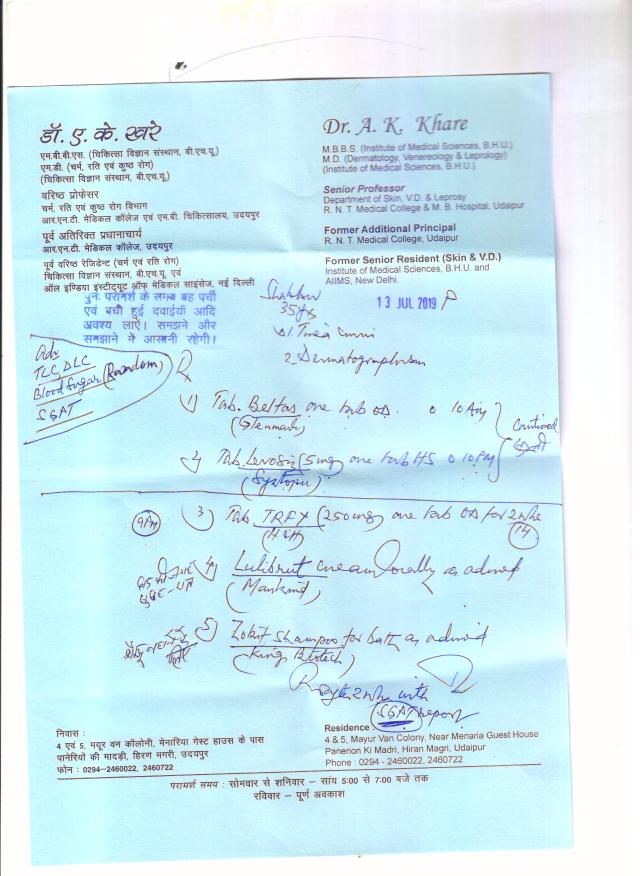 डॉ. ए. के. खरे
एम.बी.बी.एस. (चिकित्सा विज्ञान संस्थान, बी.एच.यू.)
एम.डी. (चर्म, रति एवं कुष्ठ रोग)
(चिकित्सा विज्ञान संस्थान, बी.एच.यू.)
वरिष्ठ प्रोफेसर
चर्म, रति एवं कुष्ठ रोग विभाग
आर.एन.टी. मेडिकल कॉलेज एवं एम.बी. चिकित्सालय, उदयपुर
पूर्व अतिरिक्त प्रधानाचार्य
आर.एन.टी. मेडिकल कॉलेज, उदयपुर
पूर्व वरिष्ठ रेजिडेन्ट (चर्म एवं रति रोग)
चिकित्सा विज्ञान संस्थान, बी.एच.यू. एवं
ऑल इण्डिया इंस्टीट्यूट ऑफ मेडिकल साइंसेज, नई दिल्ली
Dr. A. K. Khare
M.B.B.S. (Institute of Medical Sciences, B.H.U.)
M.D. (Dermatology, Venereology & Leprology)
(Institute of Medical Sciences, B.H.U.)
Senior Professor
Department of Skin, V.D. & Leprosy
R. N. T. Medical College & M. B. Hospital, Udaipur
Former Additional Principal
R. N. T. Medical College, Udaipur
Former Senior Resident (Skin & V.D.)
Institute of Medical Sciences, B.H.U. and
AIIMS, New Delhi.
पुनः परामर्श के समय यह पर्ची
एवं बची हुई दवाईयाँ आदि
अवश्य लाऐं। समझने और
समझाने में आसानी रहेगी।
13 JUL 2019
35yrs
2. Dermatographism
Adv
TLC, DLC
Blood Sugar (Random)
SGAT
1) Tab. Beltas one tab OD. 10 Am
(Glenmark)
2) Tab. (5mg) one tab HS 10 Pm
(Systopic)
9 Am
3) Tab TRFX (250mg) one tab OD for 2 wks
14
4) Lulibrut cream locally as advised
(Mankind)
5) Shampoo for bath as advised
(Kings Biotech)
2 wks with
SGAT report
निवास :
4 एवं 5, मयूर वन कॉलोनी, मेनारिया गेस्ट हाउस के पास
पानेरियों की मादड़ी, हिरण मगरी, उदयपुर
फोन : 0294-2460022, 2460722
Residence :
4 & 5, Mayur Van Colony, Near Menaria Guest House
Panerion Ki Madri, Hiran Magri, Udaipur
Phone : 0294 - 2460022, 2460722
परामर्श समय : सोमवार से शनिवार – सांय 5:00 से 7:00 बजे तक
रविवार – पूर्ण अवकाश